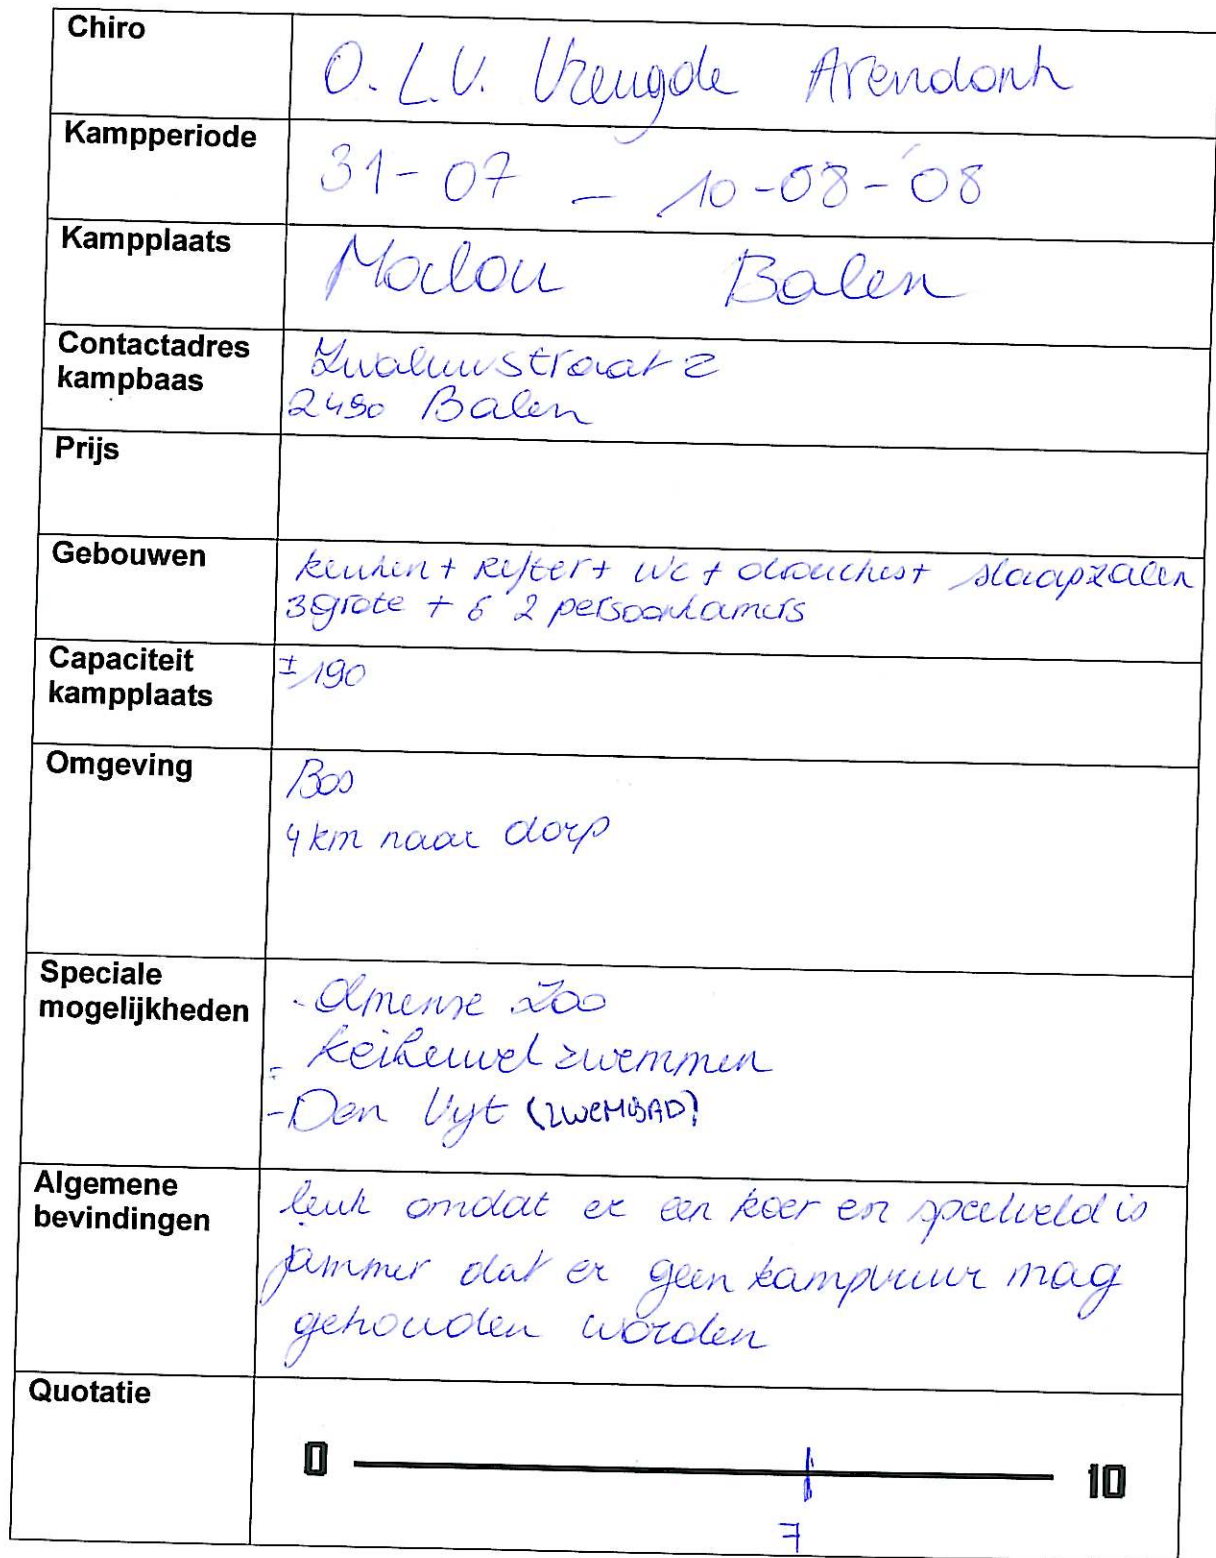 Chiro
O. L.V. Vreugde Arendonk
Kampperiode
31-07 - 10-08-'08
Kampplaats
Malou Balen
Contactadres
kampbaas
Zwaluwstraat 2
2490 Balen
Prijs
Gebouwen
keuken + Refter + wc + douches + slaapzalen
3 grote + 6 2 persoonkamers
Capaciteit
kampplaats
± 190
Omgeving
Bos
4 km naar dorp
Speciale
mogelijkheden
- Olmense Zoo
- Keiheuvel zwemmen
- Den Uyt (ZWEMBAD)
Algemene
bevindingen
leuk omdat er een koer en speelveld is
jammer dat er geen kampvuur mag
gehouden worden
Quotatie
0 10
7